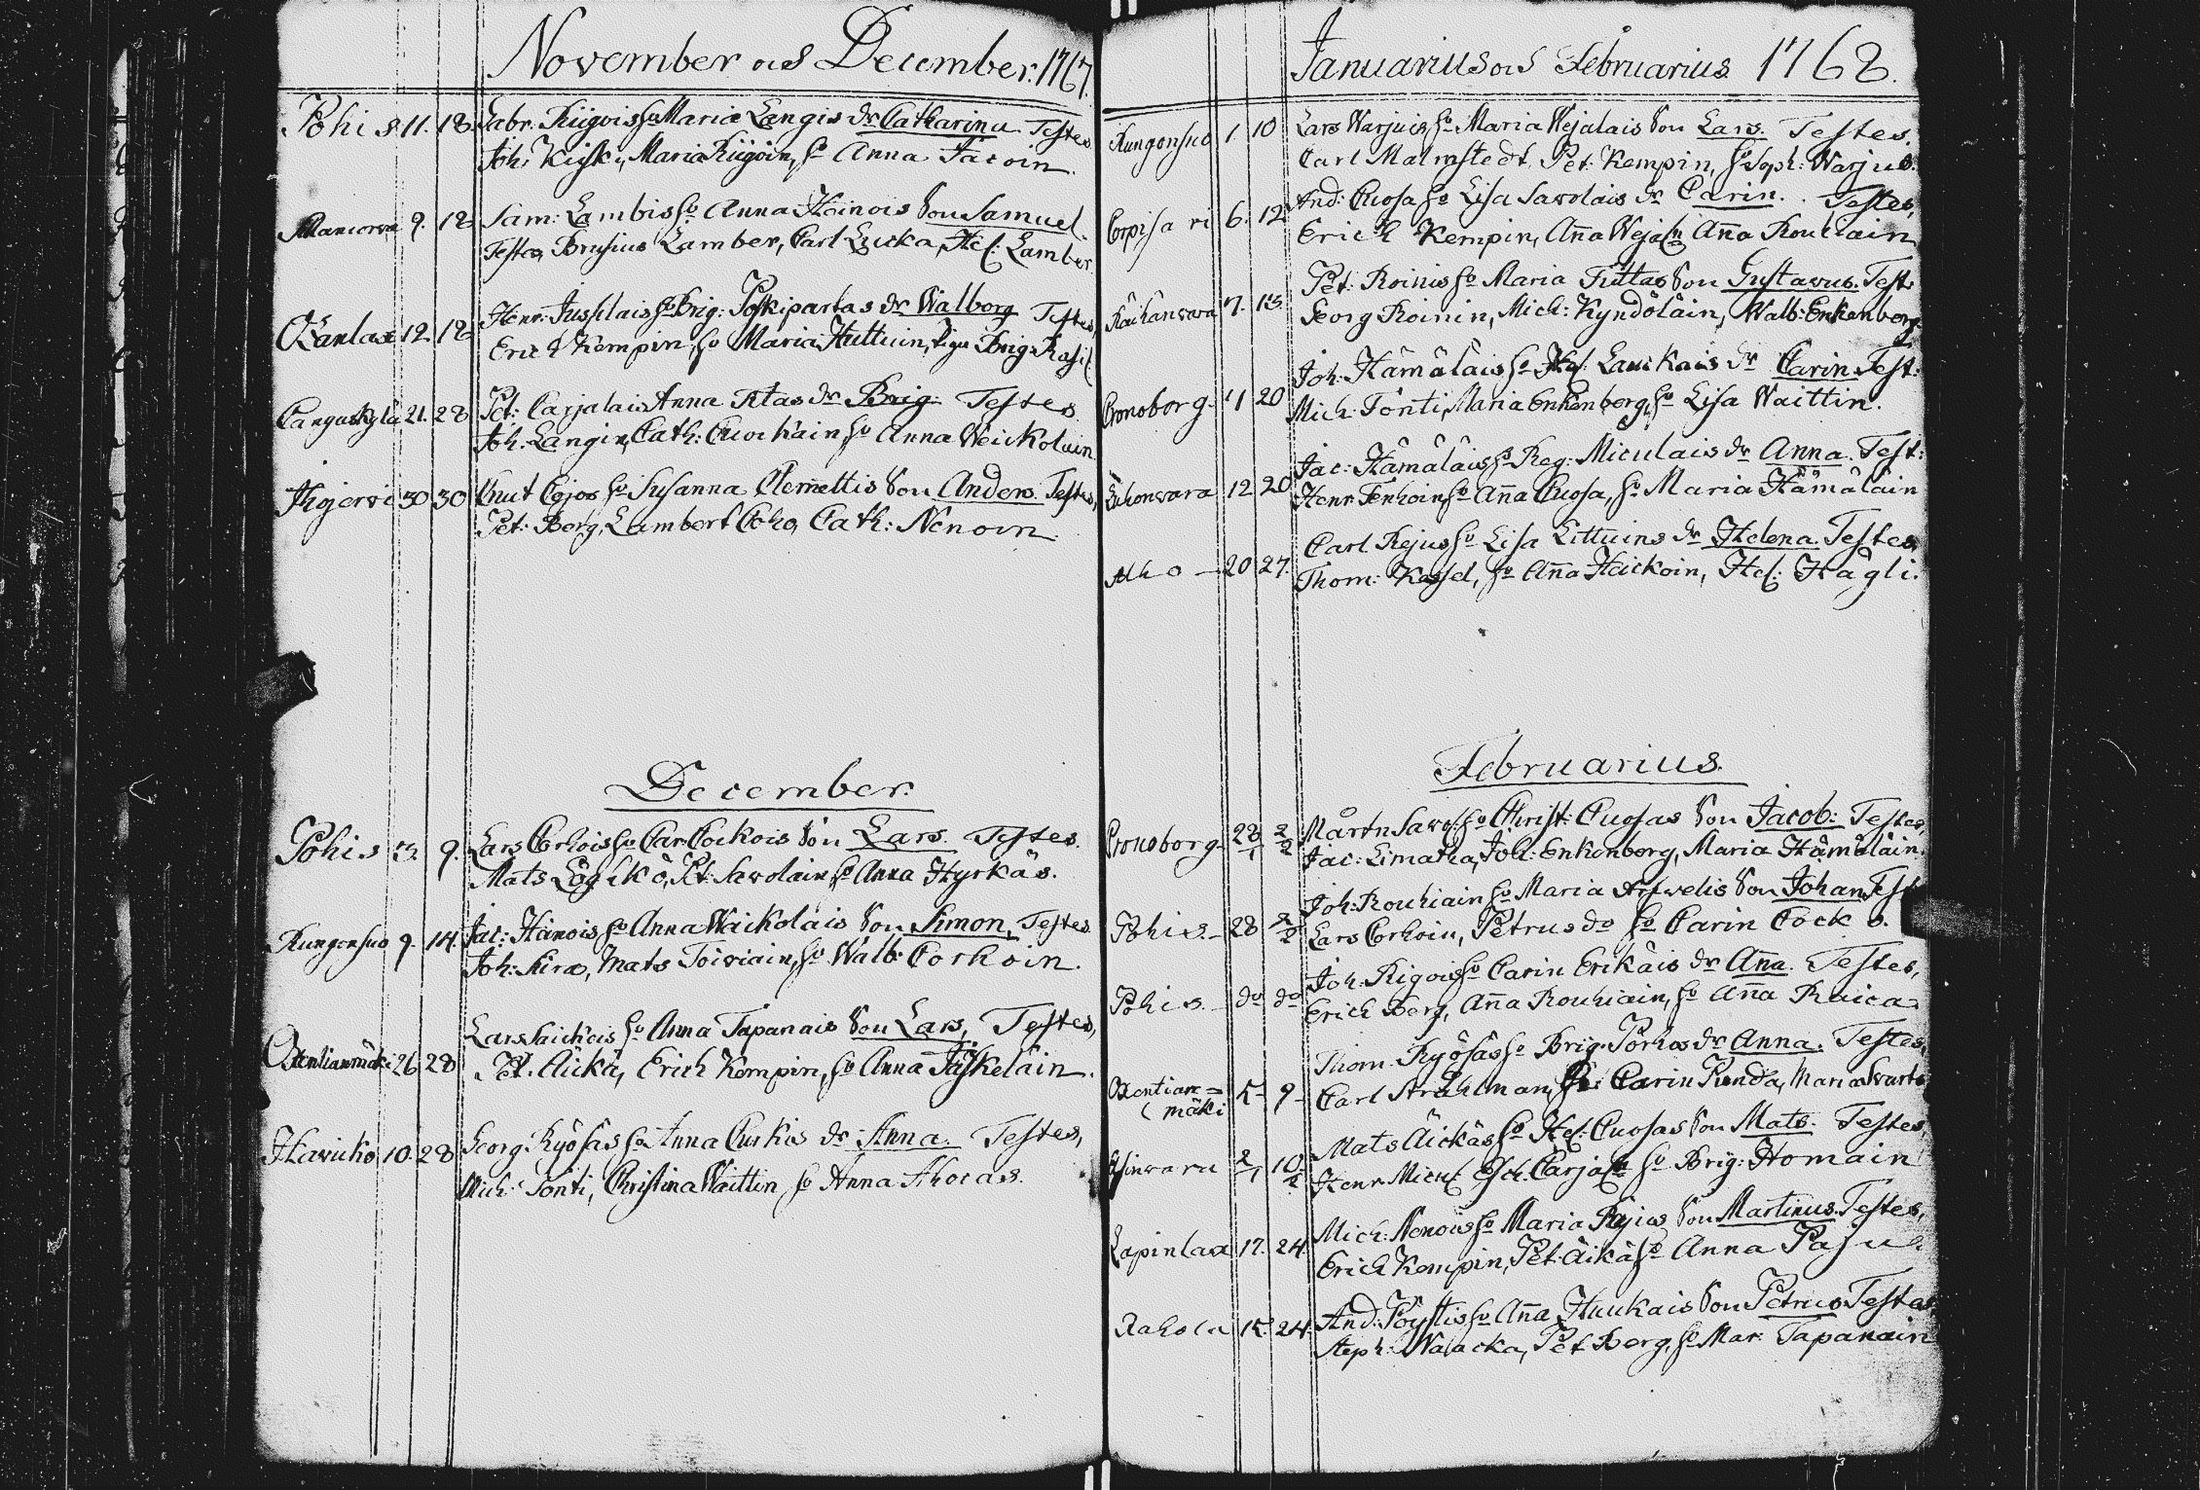 November och December. 1767.
Pohis 8. 11. 18. Gabr. Riigois hu Maria Langis dr Catharina. Testes
Joh: Kiiski, Maria Riigoin, ho Anna
9. 18. Sam: Lambis ho Anna Heinois Son Samuel.
Testes, Brusius Lamber, Carl Lucka, Hel: Lamber.
Oxanlax 12. 18. Henr: Jusslais ho Brig: Poskipartas dr Walborg Testes,
Erich Kempin, ho Maria Huttuin, Brig:
Cangaskylä 21. 28. Pet: Carjalais Anna Ritas dr Brig: Testes
Joh. Langin, Cath: ho Anna Weickolain.
30 30 Knut Cojos ho Susanna Clemettis Son Anders. Testes,
Pet: Berg, Lambert Coho, Cath: Nenoin.
December.
Pohis 3. 9. Lars Corhois ho Car Cockois Son Lars. Testes.
Mats Pet: Savolain ho Anna Hyrkäs.
Rungonsuo 9. 14. Jac: Hänois ho Anna Waikolais Son Simon, Testes
Joh: Mats Toiviain, ho Walb: Corhoin.
26 28 Lars Saickois ho Anna Tapanais Son Lars, Testes,
Pet. Äickä, Erich Kempin, ho Anna Jäskeläin.
Haricko 10. 28 Georg Ryösäs ho Anna Curkis dr Anna. Testes,
Mich: Tonti, Christina Waittin, ho Anna Ahocas.
Januarius och Februarius 1768.
Rungonsuo 1. 10 Lars Warjuis, ho Maria Wejalais Son Lars. Testes.
Carl Malmstedt, Pet: Kempin, ho Soph: Warjus.
Corpisari 6. 12 And: Cuosa ho Lisa Savolais dr Carin. Testes,
Erich Kempin, Aña Aña Rouhiain
7. Pet: Roinis ho Maria Tuttas Son Gustavus. Test:
Georg Roinin, Mich: Kyndöläin, Walb: Enkenberg.
Cronoborg. 11 20 Joh: Hämäläis ho Hel: Laukais dr Carin Test:
Mich: Tönti, Maria Enkenberg, ho Lisa Waittin.
12 20 Jac: Hämäläis ho Reg: Miculais dr Anna. Test:
Henr. Tenhoin, ho Aña Cuosa, ho Maria Hämäläin
Alho 20 27. Carl Rejus ho Lisa Littuins dr Helena. Testes
Thom: Kassel, ho Aña Heickoin, Hel: Hägli.
Februarius.
Cronoborg. 28/1 2/2 Mårtn Savo: ho Christ: Cuosas Son Jacob: Testes,
Jac: Limatta, Joh: Enkenberg, Maria Hämäläin.
Pohis 28 2/2 Joh: Rouhiain ho Maria Arvelis Son Johan Test
Lars Corhoin, Petrus do ho Carin Cock o.
Pohis. do do Joh: Rigois ho Carin Erikäis dr Aña. Testes,
Erich Berg, Aña Rouhiain, ho Aña Raica
Oxentian=
mäki 5 9 Thom. Ryösäs ho Brig. Porhos dr Anna. Testes,
Carl Strählman, ho Carin Runda, Maria Swarts
2/1 10/2 Mats Äickäs ho Hel: Cuosas Son Mats. Testes,
Henr Micul ho Brig: Homain
Lapinlax 17. 24. Mich: Nenois ho Maria Rejus Son Martinus. Testes,
Erich Kempin, Pet: Äikä ho Anna Pasu
Rahola 15. 24. And: Pöystis ho Aña Huukais Son Petrus Testes
Steph: Waacka, Pet Berg, ho Mar: Tapanain